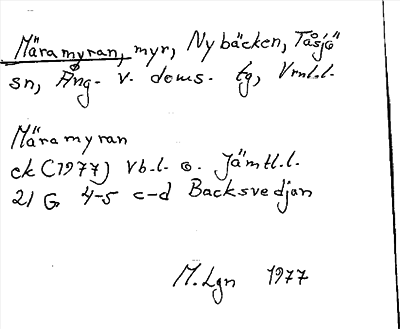 Märamyran, myr, Nybäcken, Tåsjö
sn, Ång. v. doms. tg, Vrnl.l.
Märamyran
ek (1977) Vb.l. o. Jämtl.l.
21 G 4-5 c-d Backsvedjan
M.Lgn 1977